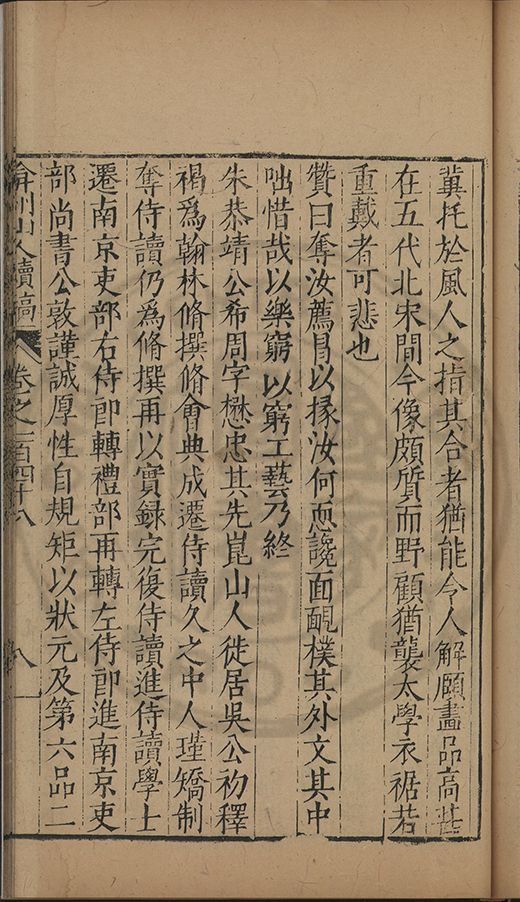 冀托於風人之指其合者猶能令人解頤畫品高甚
在五代北宋間今像頗質而野顧猶襲太學衣裾若
重戴者可悲也
贊曰奪汝薦曷以掾汝何惡讒面靦樸其外文其中
咄惜哉以樂窮以窮工藝乃終
朱恭靖公希周字懋忠其先崑山人徙居吳公初釋
褐爲翰林脩撰脩會典成遷侍讀久之中人瑾矯制
奪侍讀仍爲脩撰再以實録完復侍讀進侍讀學士
遷南京吏部右侍郎轉禮部再轉左侍郎進南京吏
部尚書公敦謹誠厚性自規矩以狀元及第六品二
弇州山人續稿 卷之一百四十八 八